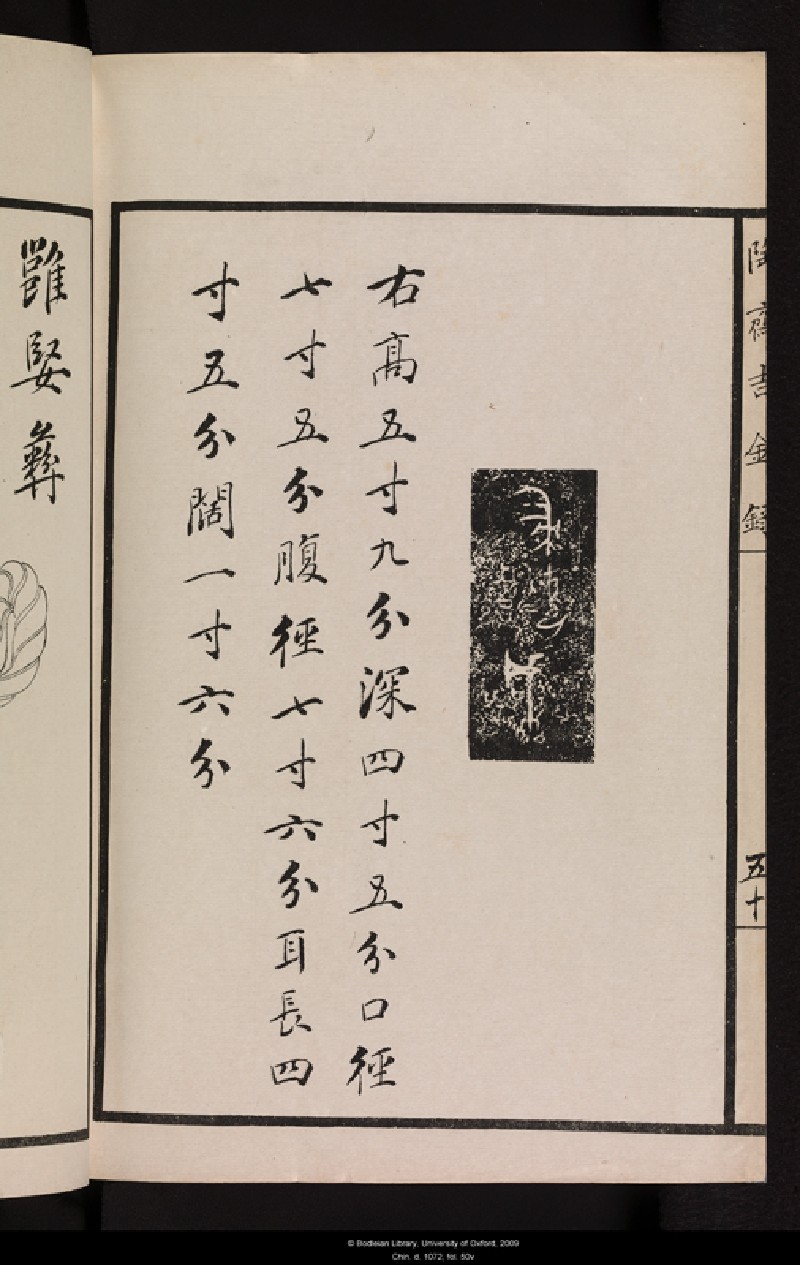 陶齋吉金錄
五十
右高五寸九分深四寸五分口徑
七寸五分腹徑七寸六分耳長四
寸五分闊一寸六分
彝
© Bodleian Library, University of Oxford, 2009
Chin. d. 1072, fol. 50v